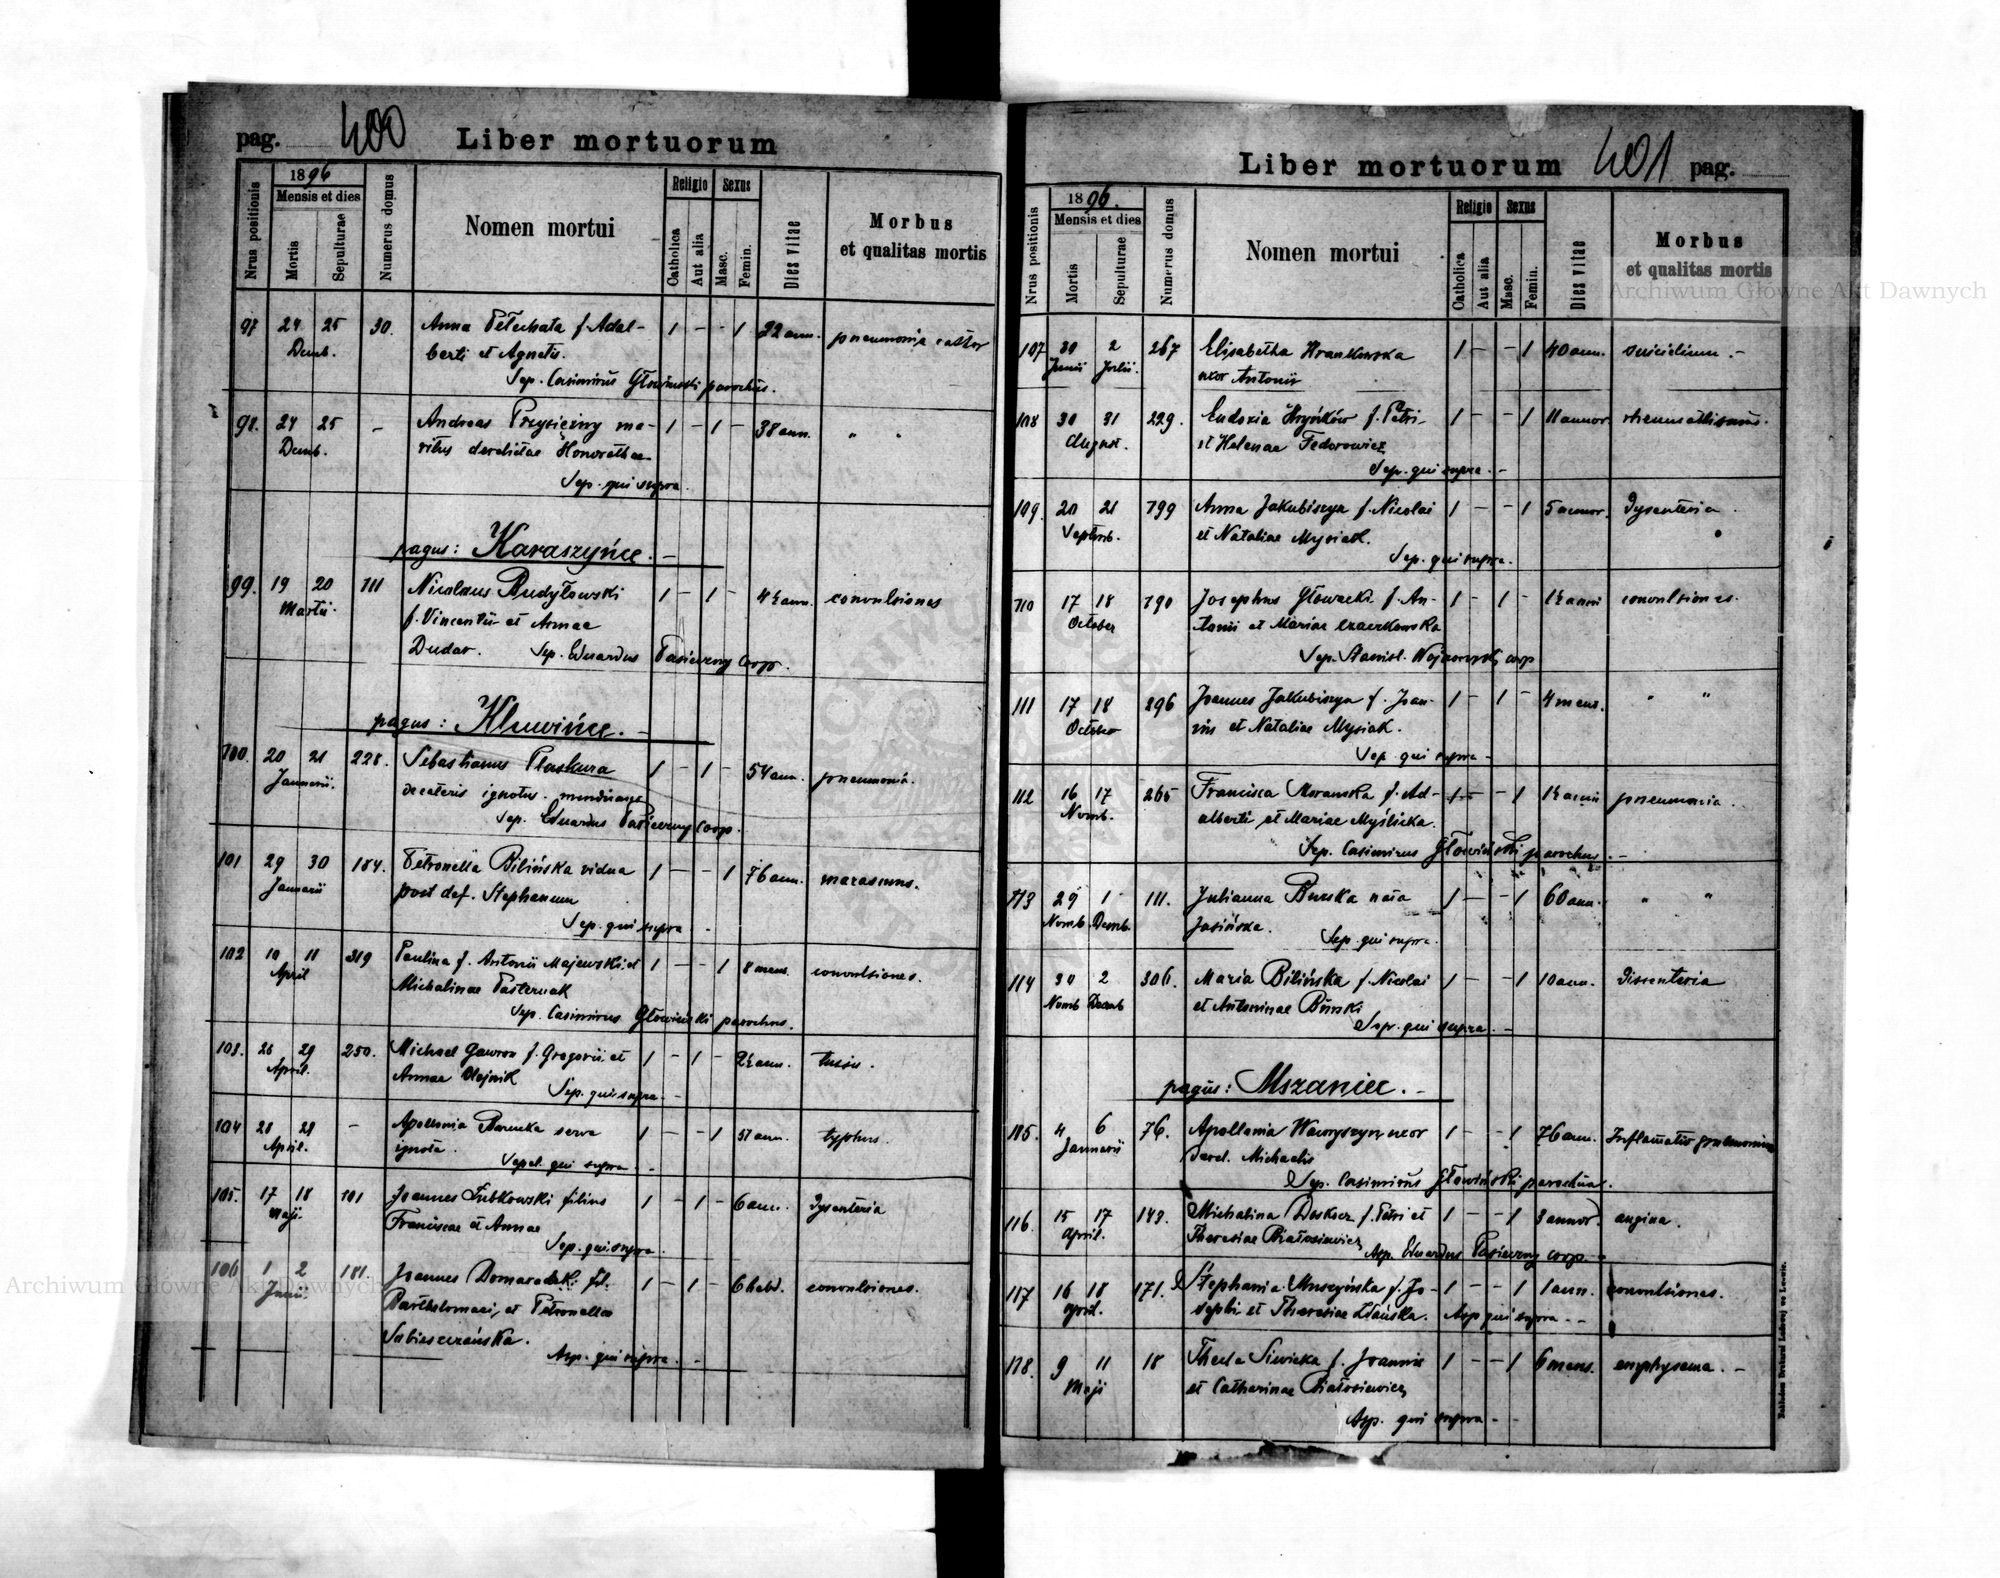 pag. 400 Liber mortuorum
Nrus positionis
1896
Mensis et dies
Mortis
Sepulturae
Numerus domus
Nomen mortui
Religio
Catholica
Aut alia
Sexus
Masc.
Femin.
Dies vitae
Morbus
et qualitas mortis
97 24 25 30. Anna Petechata f. Adal- 1 - - 1 32 ann. pneumonia
Decemb. berti et Agnetis.
Sep. Casimirus Głowiński parochus.
98. 24 25 - Andreas Przysiężny ma- 1 - 1 - 38 ann. " "
Decemb. ritus derelictae Honorathae
Sep. qui supra.
pagus: Karaszyńce. -
99. 19 20 111 Nicolaus Budyłowski 1 - 1 - 4½ ann. convulsiones
Martii. f. Vincentii et Annae
Dudar. Sep. Eduardus Pasieczny Coop.
pagus: Kluwińce. -
100. 20 21 228. Sebastianus Płaskura 1 - 1 - 54 ann. pneumonia.
Januarii. de caeteris ignotus.
Sep. Eduardus Pasieczny Coop.
101 29 30 184. Petronella Bilińska vidua 1 - - 1 76 ann. marasmus.
Januarii post def. Stephanum
Sep. qui supra.
102 10 11 319 Paulina f. Antonii Majewski et 1 - - 1 8 mens. convulsiones.
April Michalinae Pasternak
Sep. Casimirus Głowiński parochus.
103. 26 29 250. Michael Gawron f. Gregorii et 1 - 1 - 2½ ann. tussis.
April. Annae Olejnik
Sep. qui supra.
104 28 29 - Apollonia Barucka serva 1 - - 1 57 ann. typhus.
April. ignota.
Sepel. qui supra.
105. 17 18 101 Joannes Łubkowski filius 1 - 1 - 6 ann. Dysenteria
Maji. Francisci et Annae
Sep. qui supra.
106 1 2 181. Joannes Domaradzki fil. 1 - 1 - 6 hebd. convulsiones.
Junii. Bartholomaei et Petronellae
Sobieszczańska.
Asp. qui supra.
Liber mortuorum 401 pag.
Nrus positionis
1896.
Mensis et dies
Mortis
Sepulturae
Numerus domus
Nomen mortui
Religio
Catholica
Aut alia
Sexus
Masc.
Femin.
Dies vitae
Morbus
et qualitas mortis
107 30 2 267 Elisabetha Hrankowska 1 - - 1 40 ann. suicidium. -
Junii Julii. uxor Antonii
108 30 31 229. Eudoxia Hryńków f. Petri 1 - - 1 11 annor. rheumathismus.
August. et Helenae Fedorowicz
Sep. qui supra. -
109. 20 21 799 Anna Jakubiszyn f. Nicolai 1 - - 1 5 annor. Dysenteria
Septemb. et Nataliae Mysiak.
Sep. qui supra.
110 17 18 790 Josephus Głowacki f. An- 1 - 1 - 1½ anni convulsiones.
October tonii et Mariae Czaczkowska
Sep. Stanisl. coop
111 17 18 296 Joannes Jakubiszyn f. Joan- 1 - 1 - 4 mens. " "
October nis et Nataliae Mysiak.
Sep. qui supra -
112 16 17 265 Francisca Moranska f. Ad- 1 - - 1 1½ anni pneumonia.
Novemb. alberti et Mariae Myślicka.
Sep. Casimirus Głowiński parochus. -
113 29 1 111. Julianna Burska nata 1 - - 1 60 ann. " "
Novemb Decemb. Jasińska.
Sep. qui supra.
114 30 2 306. Maria Bilińska f. Nicolai 1 - - 1 10 ann. Dissenteria
Novemb Decemb et Antoninae Burski
Sep. qui supra. -
pagus: Mszaniec. -
115. 4 6 76. Apollonia Wawryszyn uxor 1 - - 1 76 ann. Inflamatio pneumoniae
Januarii derel. Michaelis
Sep. Casimirus Głowiński parochus.
116. 15 17 143. Michalina Deskur f. Petri et 1 - - 1 3 annor. angina.
April. Theresiae Białosiewicz
Asp. Eduardus Pasieczny coop. -
117 16 18 171. Stephania Muszyńska f. Jo- 1 - - 1 1 ann. convulsiones.
April. sephi et Theresiae Zdańska. Asp. qui supra - -
118. 9 11 18 Thecla Siwicka f. Joannis 1 - - 1 6 mens. emphysema. -
Maji et Catharinae Białosiewicz
Asp. qui supra - -
Archiwum Główne Akt Dawnych
Archiwum Główne Akt Dawnych